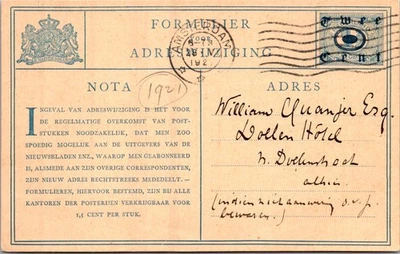 FORMULIER
ADRESWIJZIGING
Twee
Cent
AMSTERDAM
192
NOTA
(1921
INGEVAL VAN ADRESWIJZIGING IS HET VOOR
DE REGELMATIGE OVERKOMST VAN POST-
STUKKEN NOODZAKELIJK, DAT MEN ZOO
SPOEDIG MOGELIJK AAN DE UITGEVERS VAN
NIEUWSBLADEN ENZ., WAAROP MEN GEABONNEERD
IS, ALSMEDE AAN ZIJN OVERIGE CORRESPONDENTEN,
ZIJN NIEUW ADRES RECHTSTREEKS MEDEDEELT. —
FORMULIEREN, HIERVOOR BESTEMD, ZIJN BIJ ALLE
KANTOREN DER POSTERIJEN VERKRIJGBAAR VOOR
1,5 CENT PER STUK.
ADRES
William Quanjer Esq.
Doelen Hôtel
N. Doelenstraat
alhier
(indien niet aanwezig s.v.p.
bewaren.)